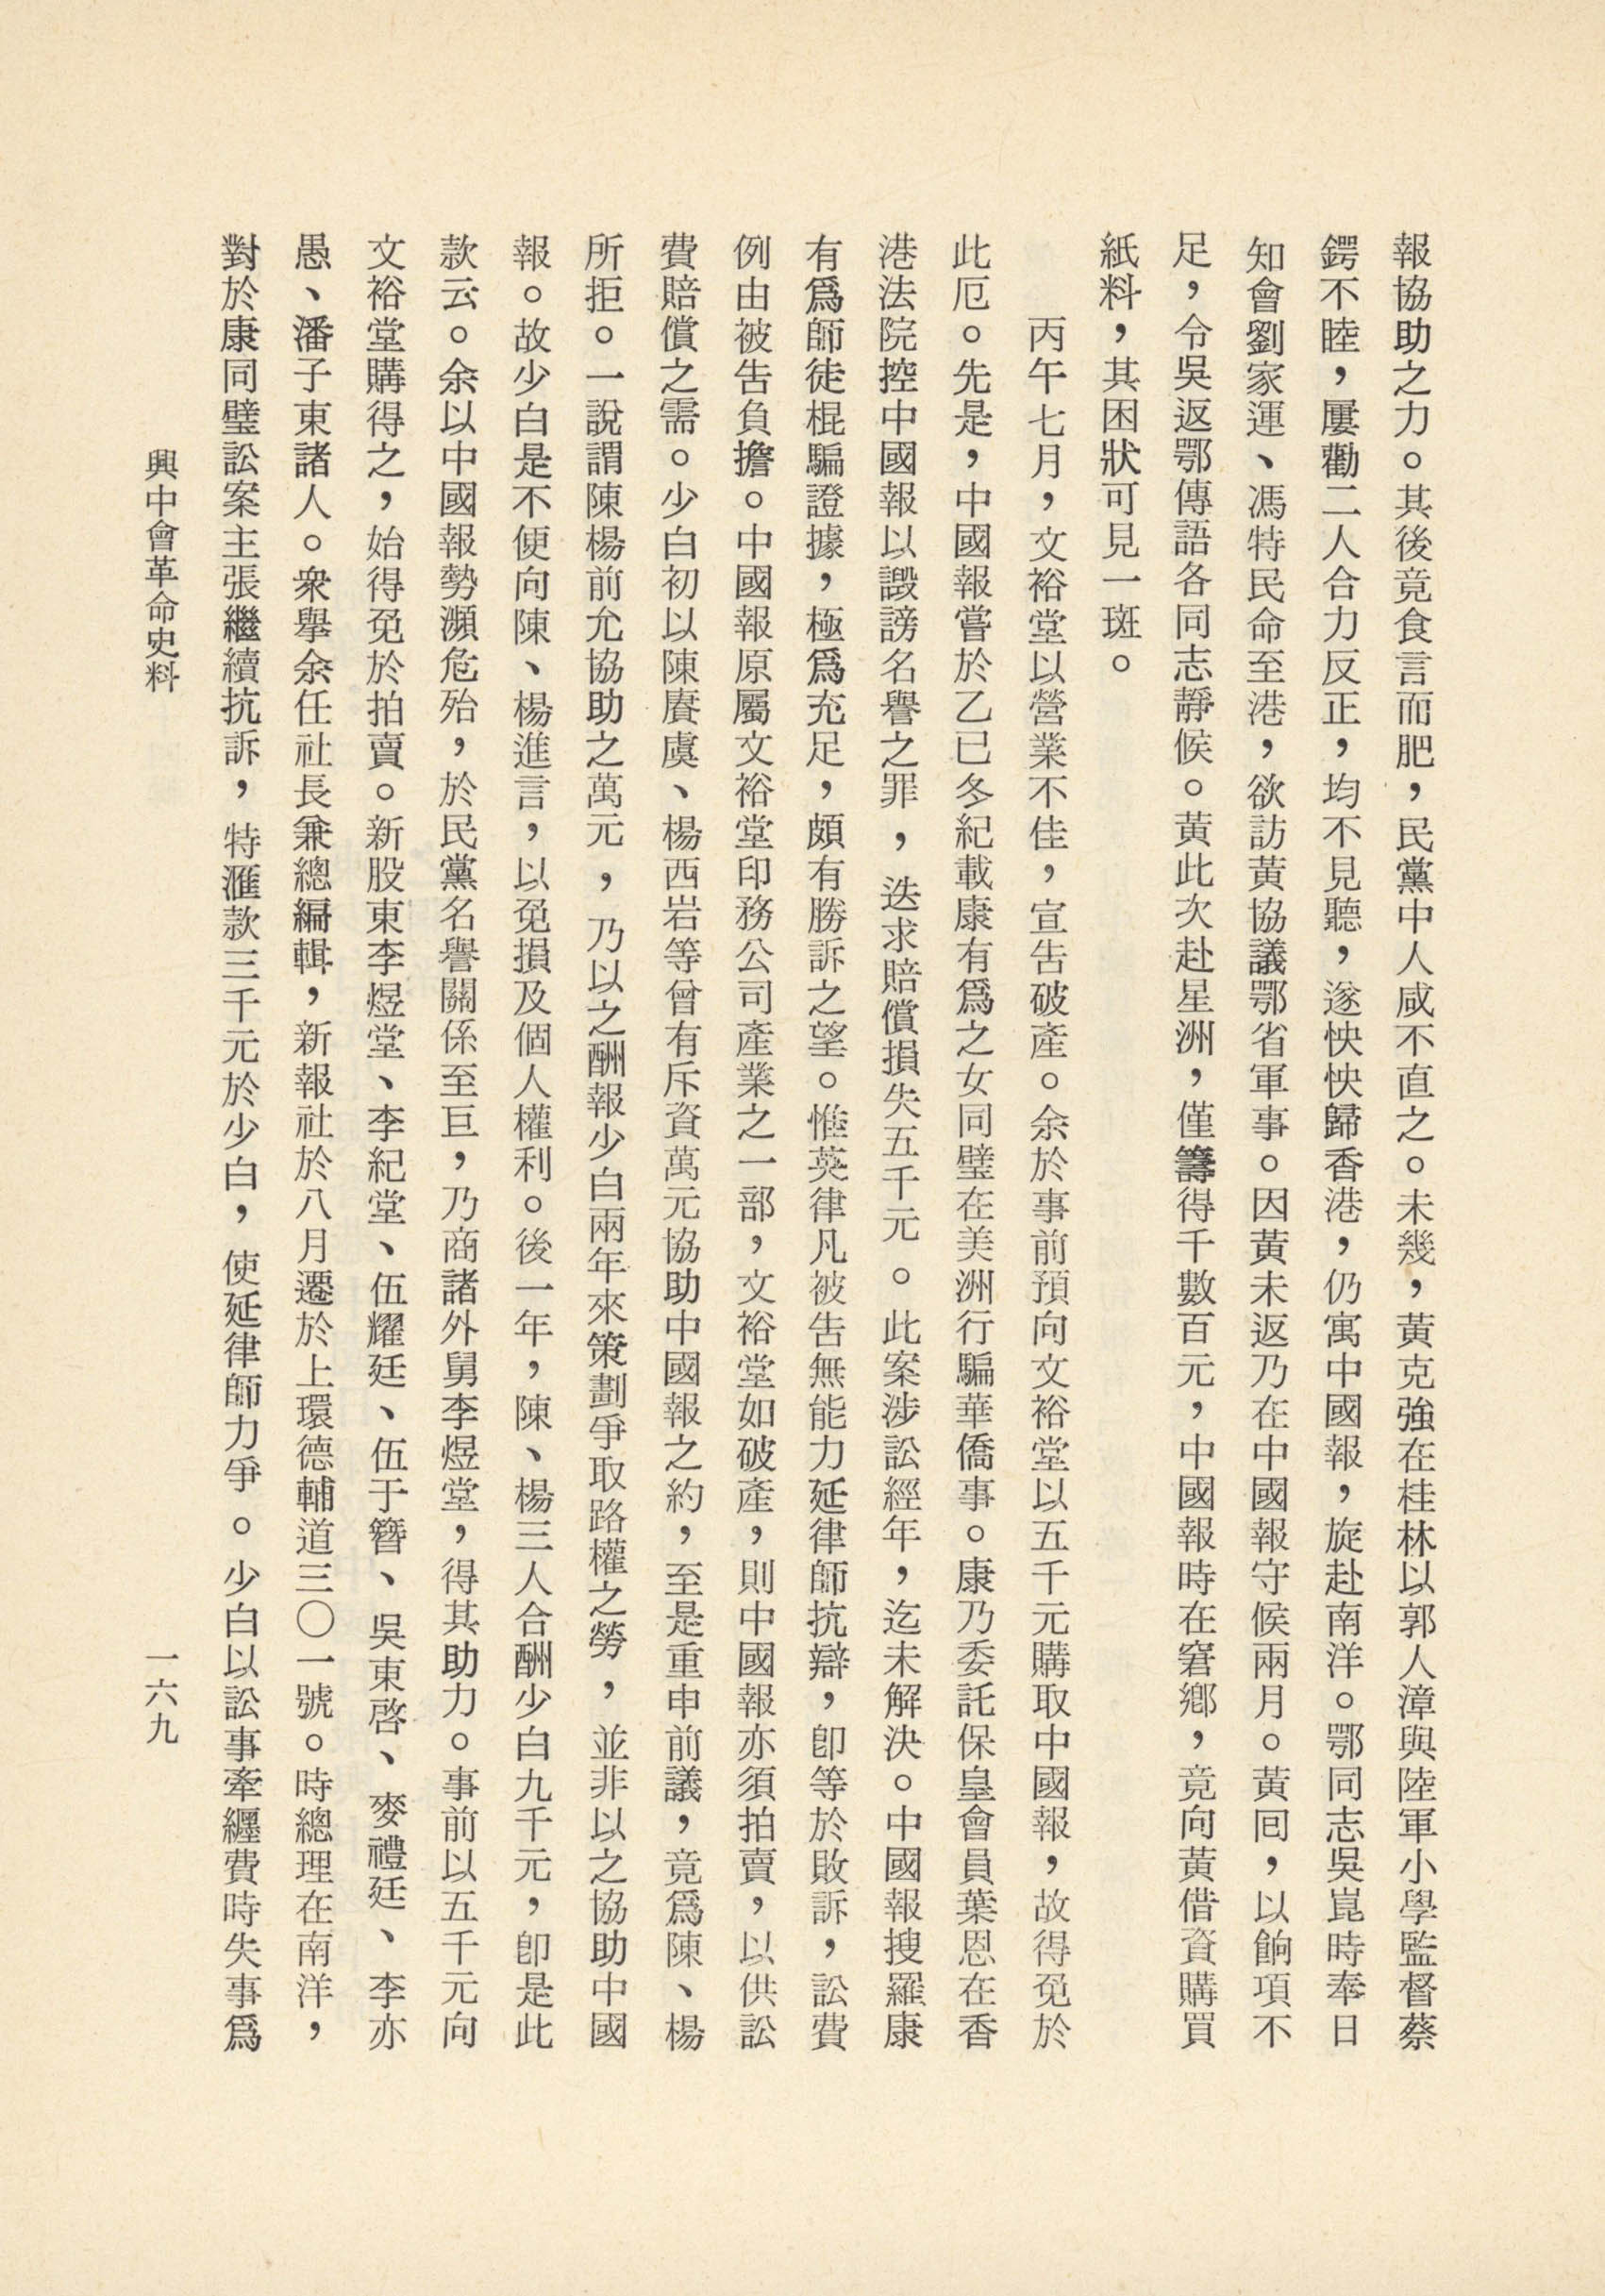 報協助之力。其後竟食言而肥，民黨中人咸不直之。未幾，黃克強在桂林以郭人漳與陸軍小學監督蔡
鍔不睦，屢勸二人合力反正，均不見聽，遂怏怏歸香港，仍寓中國報，旋赴南洋。鄂同志吳崑時奉日
知會劉家運、馮特民命至港，欲訪黃協議鄂省軍事。因黃未返乃在中國報守候兩月。黃囘，以餉項不
足，令吳返鄂傳語各同志靜候。黃此次赴星洲，僅籌得千數百元，中國報時在窘鄉，竟向黃借資購買
紙料，其困狀可見一斑。
丙午七月，文裕堂以營業不佳，宣告破產。余於事前預向文裕堂以五千元購取中國報，故得免於
此厄。先是，中國報嘗於乙巳冬紀載康有爲之女同璧在美洲行騙華僑事。康乃委託保皇會員葉恩在香
港法院控中國報以譭謗名譽之罪，迭求賠償損失五千元。此案涉訟經年，迄未解決。中國報搜羅康
有爲師徒棍騙證據，極爲充足，頗有勝訴之望。惟英律凡被告無能力延律師抗辯，卽等於敗訴，訟費
例由被告負擔。中國報原屬文裕堂印務公司產業之一部，文裕堂如破產，則中國報亦須拍賣，以供訟
費賠償之需。少白初以陳賡虞、楊西岩等曾有斥資萬元協助中國報之約，至是重申前議，竟爲陳、楊
所拒。一說謂陳楊前允協助之萬元，乃以之酬報少白兩年來策劃爭取路權之勞，並非以之協助中國
報。故少白是不便向陳、楊進言，以免損及個人權利。後一年，陳、楊三人合酬少白九千元，卽是此
款云。余以中國報勢瀕危殆，於民黨名譽關係至巨，乃商諸外舅李煜堂，得其助力。事前以五千元向
文裕堂購得之，始得免於拍賣。新股東李煜堂、李紀堂、伍耀廷、伍于簪、吳東啓、麥禮廷、李亦
愚、潘子東諸人。衆舉余任社長兼總編輯，新報社於八月遷於上環德輔道三〇一號。時總理在南洋，
對於康同璧訟案主張繼續抗訴，特滙款三千元於少白，使延律師力爭。少白以訟事牽纒費時失事爲
興中會革命史料
一六九